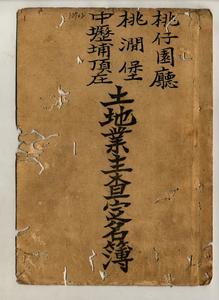 桃仔園廳
桃澗堡
中壢埔頂庄
土地業主查定名簿